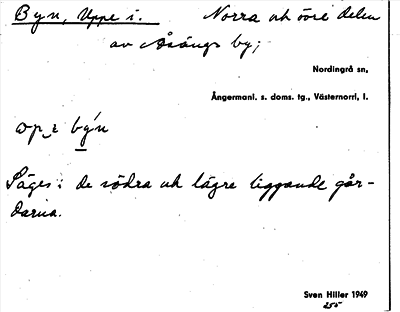 Byn, Uppe i. Norra och övre delen
av Åsängs by;
Nordingrå sn,
Ångermanl. s. doms. tg., Västernorrl, l.
byn
Säges i de södra och lägre liggande går-
darna.
Sven Hiller 1949
255